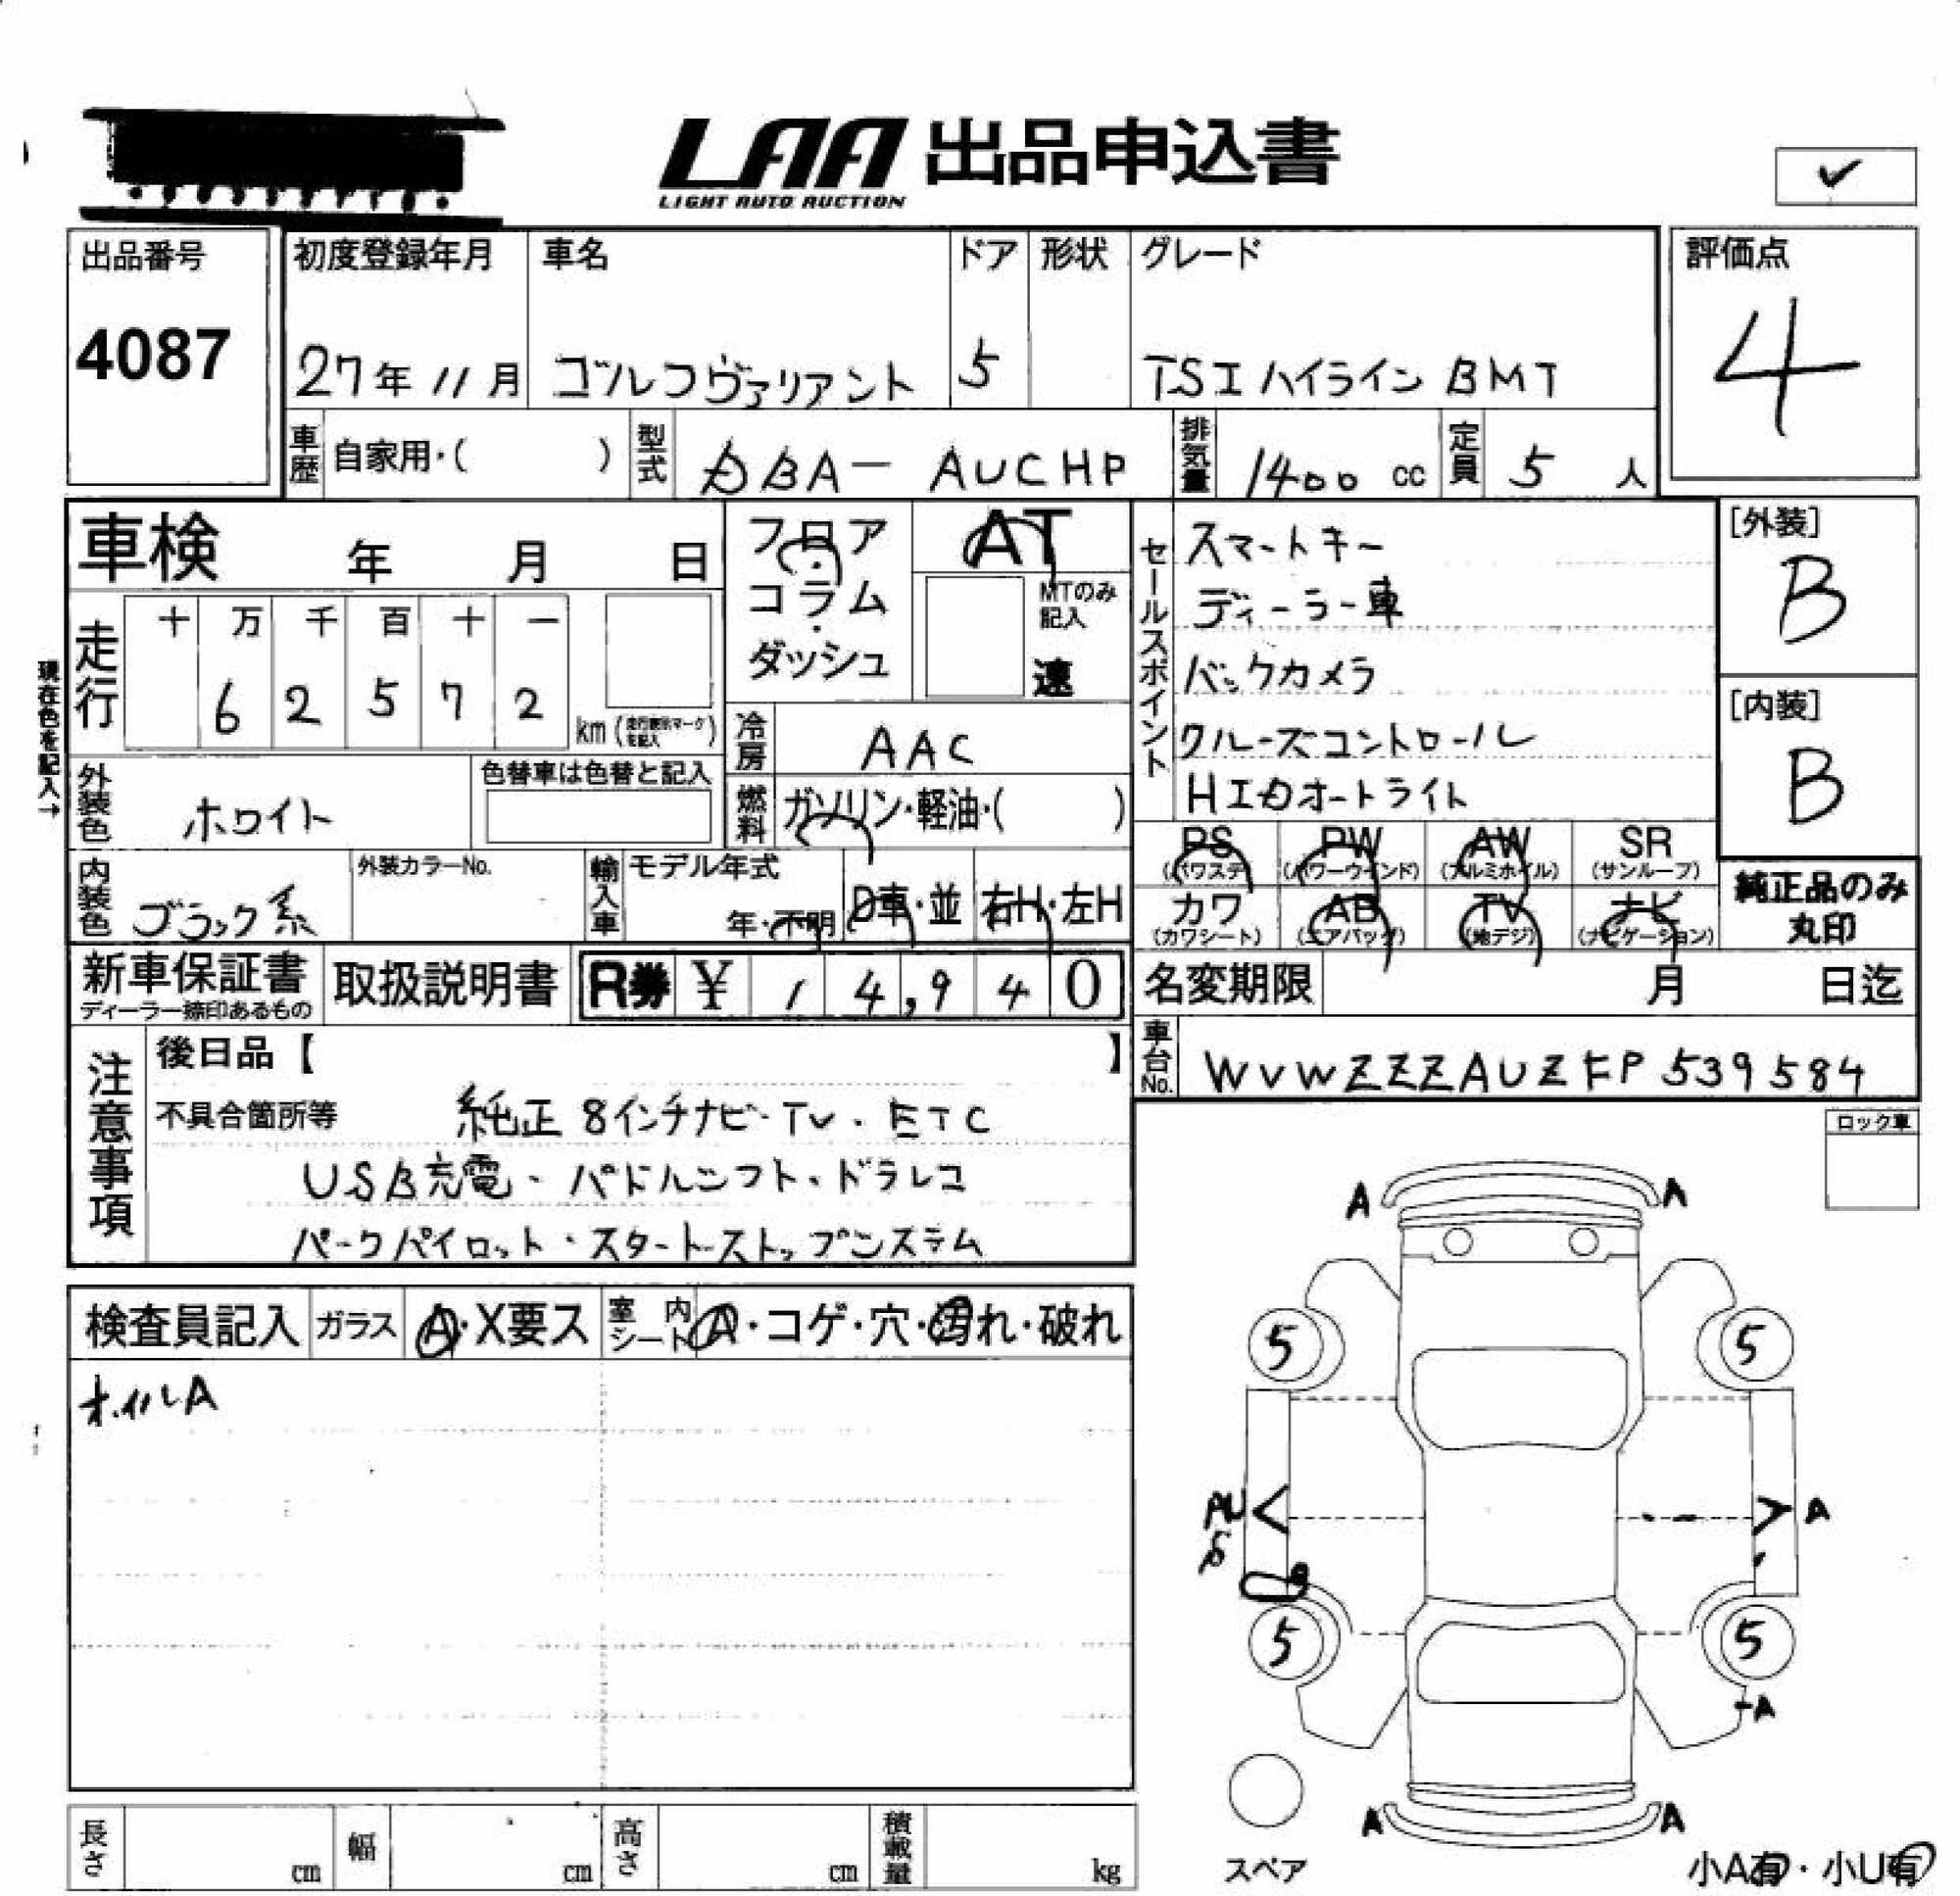 LAA 出品申込書
LIGHT AUTO AUCTION
✓
出品番号
4087
初度登録年月 車名 ドア 形状 グレード
27年 11月 ゴルフヴァリアント 5 TSI ハイライン BMT
評価点
4
車歴 自家用・( ) 型式 DBA- AUCHP 排気量 1400 cc 定員 5 人
車検 年 月 日
フロア・コラム・ダッシュ
AT
MTのみ記入
速
セールスポイント
スマートキー
ディーラー車
バックカメラ
クルーズコントロール
HIDオートライト
[外装]
B
[内装]
B
現在色を記入→
走行 十 万 千 百 十 一
6 2 5 7 2 km (走行表示マークを記入)
冷房 AAC
外装色 ホワイト 色替車は色替と記入
燃料 ガソリン・軽油・( )
内装色 ブラック系 外装カラーNo.
輸入車 モデル年式 年・不明 D車・並 右H・左H
PS (パワステ) PW (パワーウインド) AW (アルミホイル) SR (サンルーフ)
カワ (カワシート) AB (エアバッグ) TV (地デジ) ナビ (ナビゲーション)
純正品のみ
丸印
新車保証書 取扱説明書 R券 ¥ 1 4,9 4 0
ディーラー捺印あるもの
名変期限 月 日迄
車台No. WVWZZZAUZFP539584
注意事項
後日品【 】
不具合箇所等 純正 8インチナビ・TV・ETC
USB充電・パドルシフト・ドラレコ
パークパイロット・スタートストップシステム
ロック車
検査員記入 ガラス A・X要ス 室内シート A・コゲ・穴・汚れ・破れ
ホイルA
A A
5 5
A
5 5
A
A A
スペア
小A有・小U有
長さ cm 幅 cm 高さ cm 積載量 kg